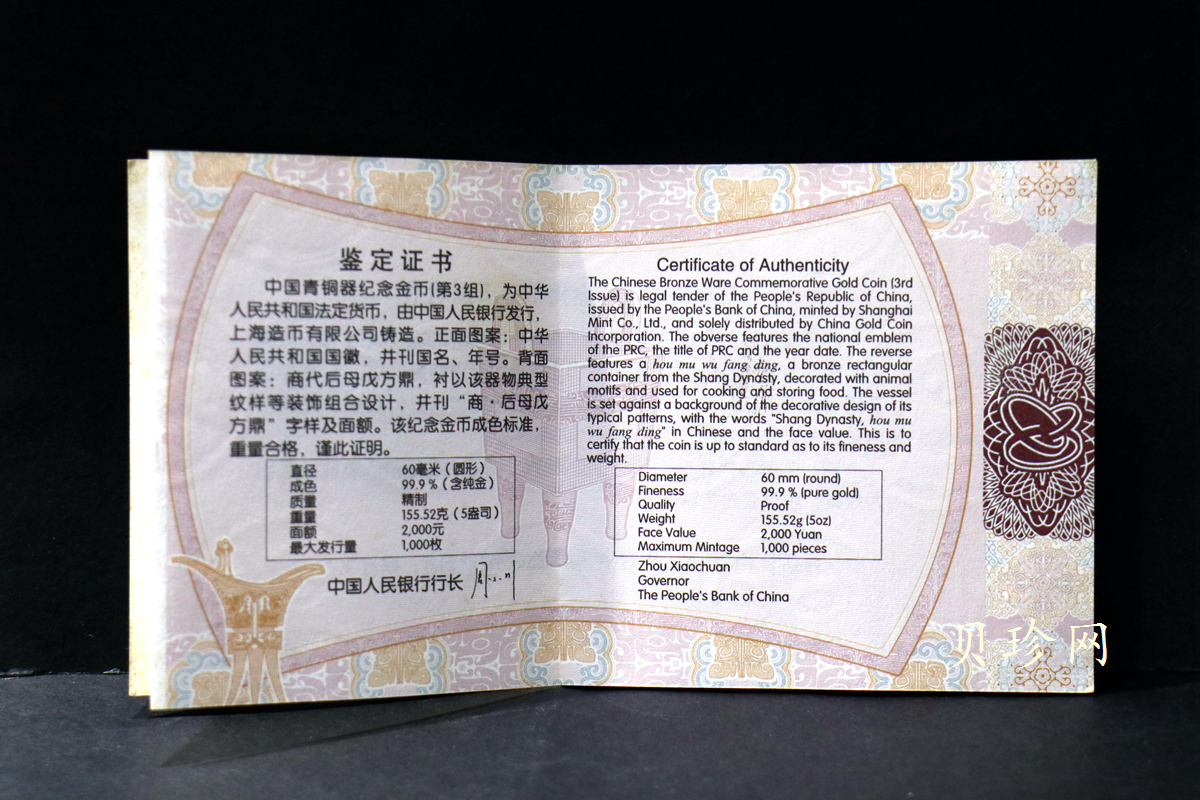 鉴定证书
中国青铜器纪念金币(第3组)，为中华
人民共和国法定货币，由中国人民银行发行，
上海造币有限公司铸造。正面图案：中华
人民共和国国徽，并刊国名、年号。背面
图案：商代后母戊方鼎，衬以该器物典型
纹样等装饰组合设计，并刊“商·后母戊
方鼎”字样及面额。该纪念金币成色标准，
重量合格，谨此证明。
直径 60毫米（圆形）
成色 99.9％（含纯金）
质量 精制
重量 155.52克（5盎司）
面额 2,000元
最大发行量 1,000枚
中国人民银行行长
Certificate of Authenticity
The Chinese Bronze Ware Commemorative Gold Coin (3rd
Issue) is legal tender of the People's Republic of China,
issued by the People's Bank of China, minted by Shanghai
Mint Co., Ltd., and solely distributed by China Gold Coin
Incorporation. The obverse features the national emblem
of the PRC, the title of PRC and the year date. The reverse
features a hou mu wu fang ding, a bronze rectangular
container from the Shang Dynasty, decorated with animal
motifs and used for cooking and storing food. The vessel
is set against a background of the decorative design of its
typical patterns, with the words "Shang Dynasty, hou mu
wu fang ding" in Chinese and the face value. This is to
certify that the coin is up to standard as to its fineness and
weight.
Diameter 60 mm (round)
Fineness 99.9 % (pure gold)
Quality Proof
Weight 155.52g (5oz)
Face Value 2,000 Yuan
Maximum Mintage 1,000 pieces
Zhou Xiaochuan
Governor
The People's Bank of China
贝珍网